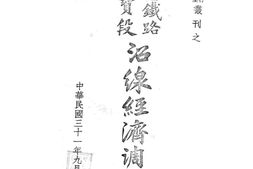 叢刊之
鐵路
段
沿線經濟調
中華民國三十一年九月